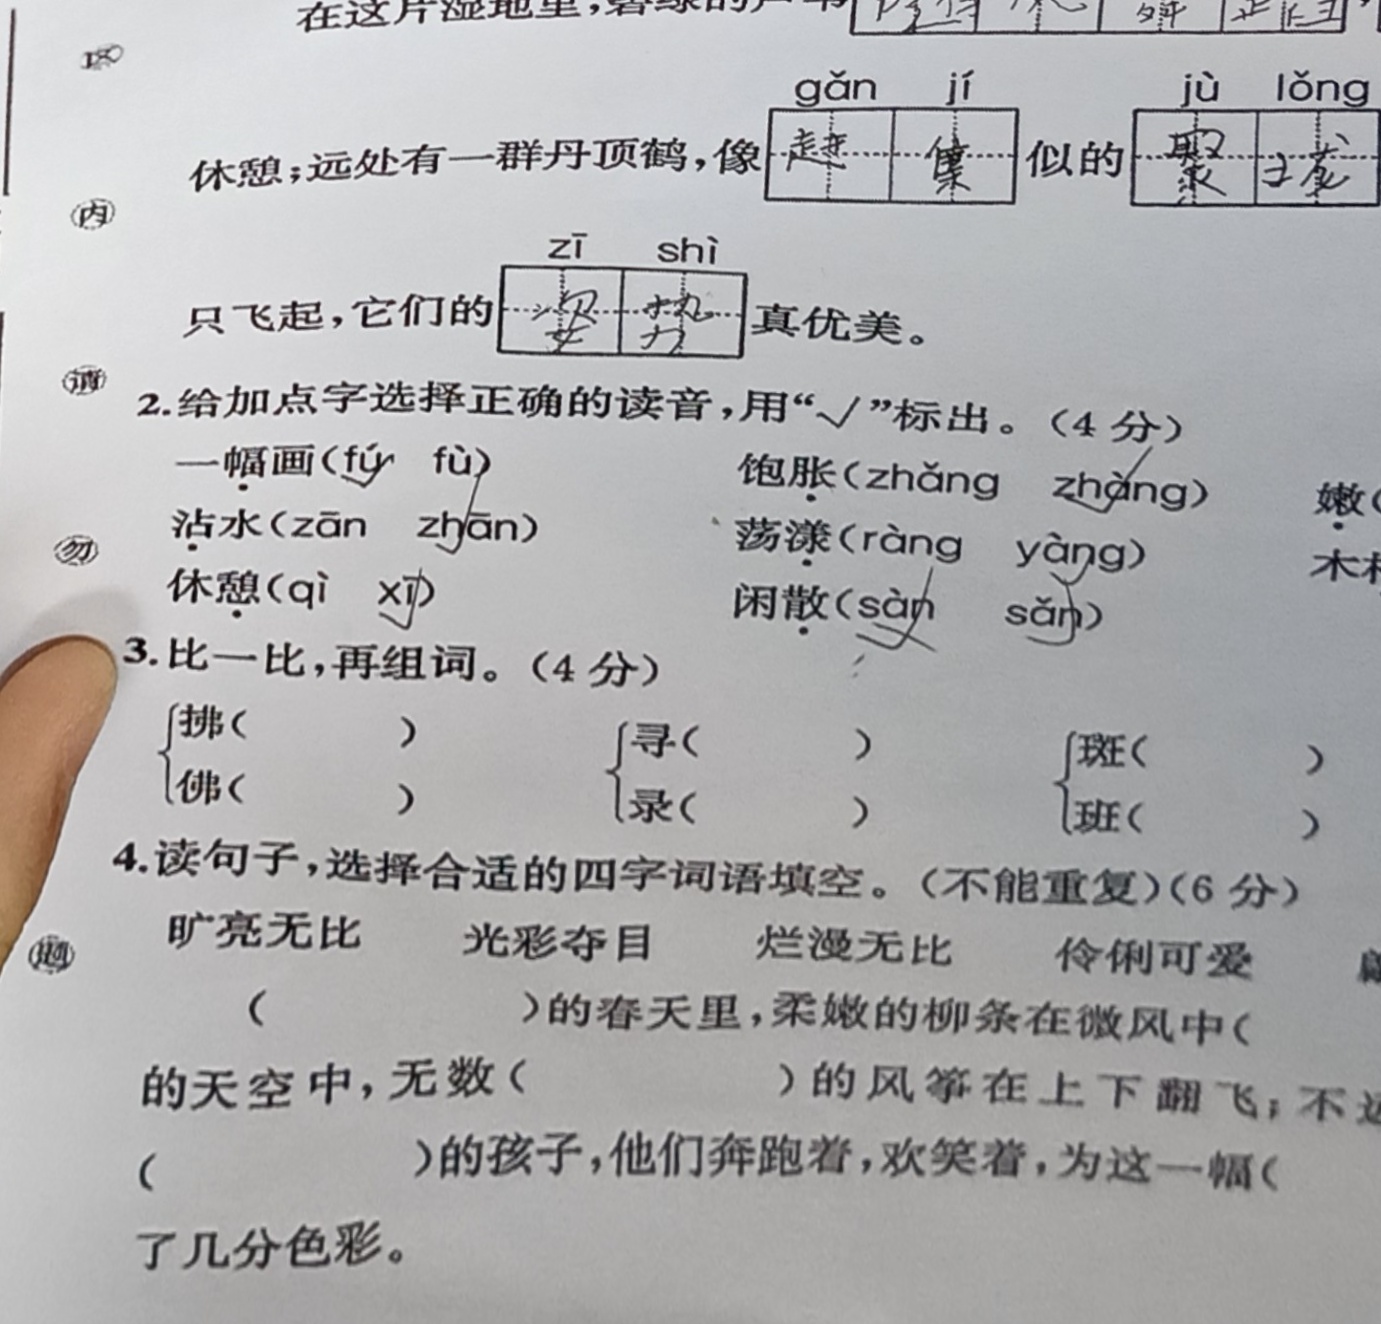 在这片湿地里,碧绿的芦苇
gǎn jí jù lǒng
休憩;远处有一群丹顶鹤,像 赶 集 似的 聚 拢
zī shì
只飞起,它们的 姿 势 真优美。
2.给加点字选择正确的读音,用“√”标出。(4 分)
一幅画(fú fù) 饱胀(zhǎng zhàng) 嫩(
沾水(zān zhān) 荡漾(ràng yàng) 木
休憩(qì xī) 闲散(sàn sǎn)
3.比一比,再组词。(4 分)
拂( ) 寻( ) 斑( )
佛( ) 录( ) 班( )
4.读句子,选择合适的四字词语填空。(不能重复)(6 分)
旷亮无比 光彩夺目 烂漫无比 伶俐可爱
( )的春天里,柔嫩的柳条在微风中(
的天空中,无数( )的风筝在上下翻飞;不远
( )的孩子,他们奔跑着,欢笑着,为这一幅(
了几分色彩。
内
请
勿
题